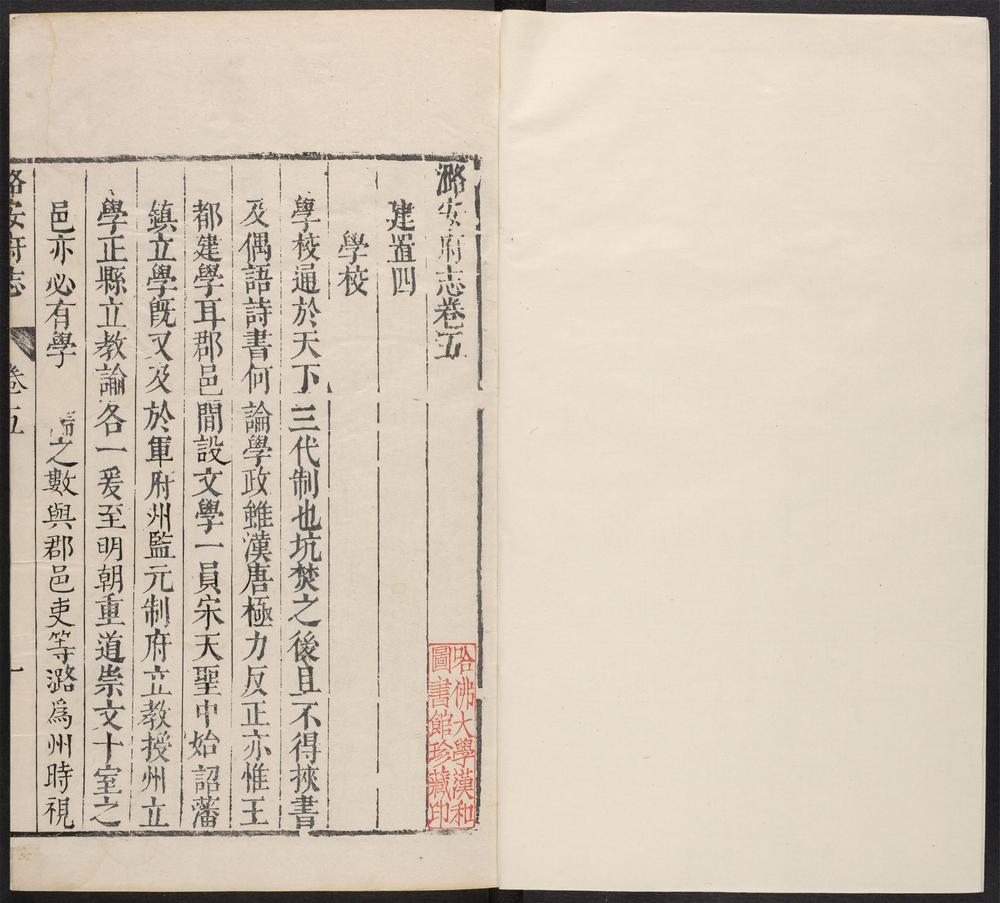 潞安府志卷五
建置四
學校
學校通於天下三代制也坑焚之後且不得挾書
及偶語詩書何論學政雖漢唐極力反正亦惟王
都建學耳郡邑間設文學一員宋天聖中始詔藩
鎮立學旣又及於軍府州監元制府立教授州立
學正縣立教諭各一爰至明朝重道崇文十室之
邑亦必有學之數與郡邑吏等潞爲州時視
潞安府志
卷五
一
哈佛大學漢和
圖書館珍藏印